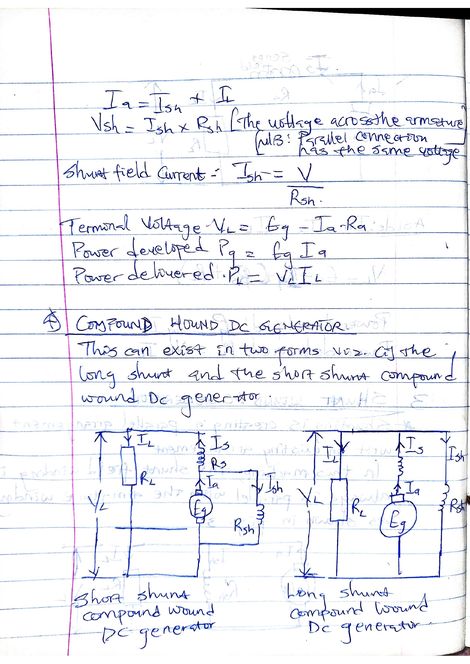 Ia = Ish + IL
Vsh = Ish x Rsh [The voltage across the armature
NB: Parallel connection
has the same voltage
Shunt field Current: Ish = V
Rsh.
Termonal Voltage VL = Eg - Ia.Ra
Power developed Pg = Eg Ia
Power delivered. PL = VL IL
4) COMPOUND HOUND DC GENERATOR
This can exist in two forms viz. (i) The
long shunt and the short shunt compound
wound DC generator.
IL Is
Rs
Ia Ish
VL RL Eg Rsh
IL Is Ish
Ia
VL RL Eg Rsh
Short shunt
compound wound
DC generator
Long shunt
compound wound
DC generator